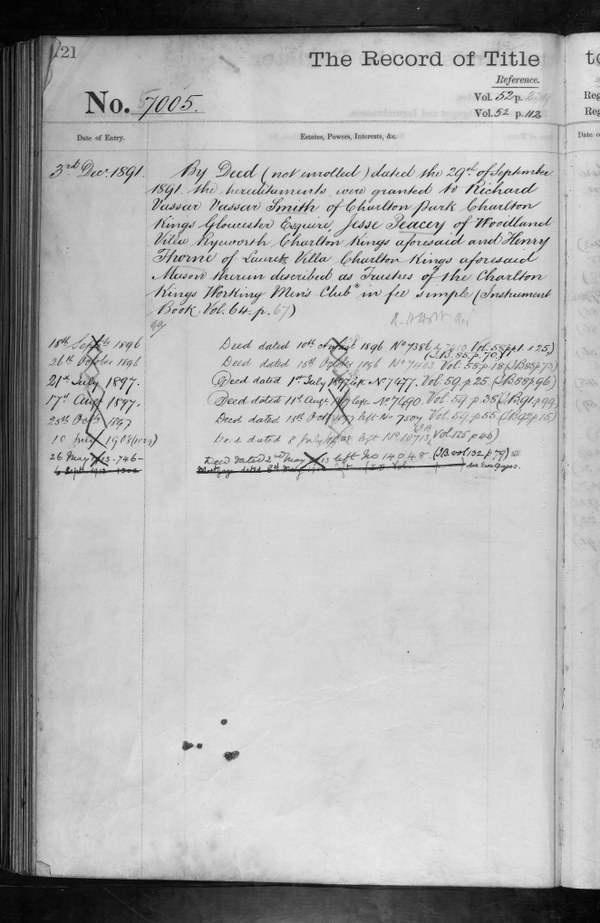 121
The Record of Title
Reference.
No. 7005.
Vol. 52 p.
Vol. 52 p. 112
Date of Entry.
Estates, Powers, Interests, &c.
3rd Dec. 1891.
By Deed (not enrolled) dated the 29th of September
1891 the hereditaments were granted to Richard
Vassar Vassar Smith of Charlton Park Charlton
Kings Gloucester Esquire, Jesse Peacey of Woodland
Villa Ryeworth Charlton Kings aforesaid and Henry
Thorne of Laurel Villa Charlton Kings aforesaid
Mason therein described as Trustees of the "Charlton
Kings Working Men's Club" in fee simple (Instrument
Book Vol. 64. p. 67)
18th Septr 1896 Deed dated 10th August 1896 No 7386 Vol. 58 p 1
(I.B. 85. p. 70)
26th October 1896 Deed dated 15th October 1896 No 7403 Vol. 58 p 18 (I.B 85 p 73)
21st July 1897. Deed dated 1st July 1897 left No 7477. Vol. 59 p. 25 (I.B 88 p 96)
17th Augt 1897. Deed dated 11th Augt 1897 left No 7490. Vol. 59 p. 38 (I.B 91 p 99)
28th Octr 1897 Deed dated 18th Octr 1897 left No 7507 Vol. 59 p. 55 (I.B 92 p 15)
10 July 1908 Deed dated 8 July 1908 left No 10713,
26 May 1913 - 746 - Deed dated 2nd May 1913 left No 14048 (I.B vol 132 p 79)
see two pages.
to
Reg
Reg
Date o